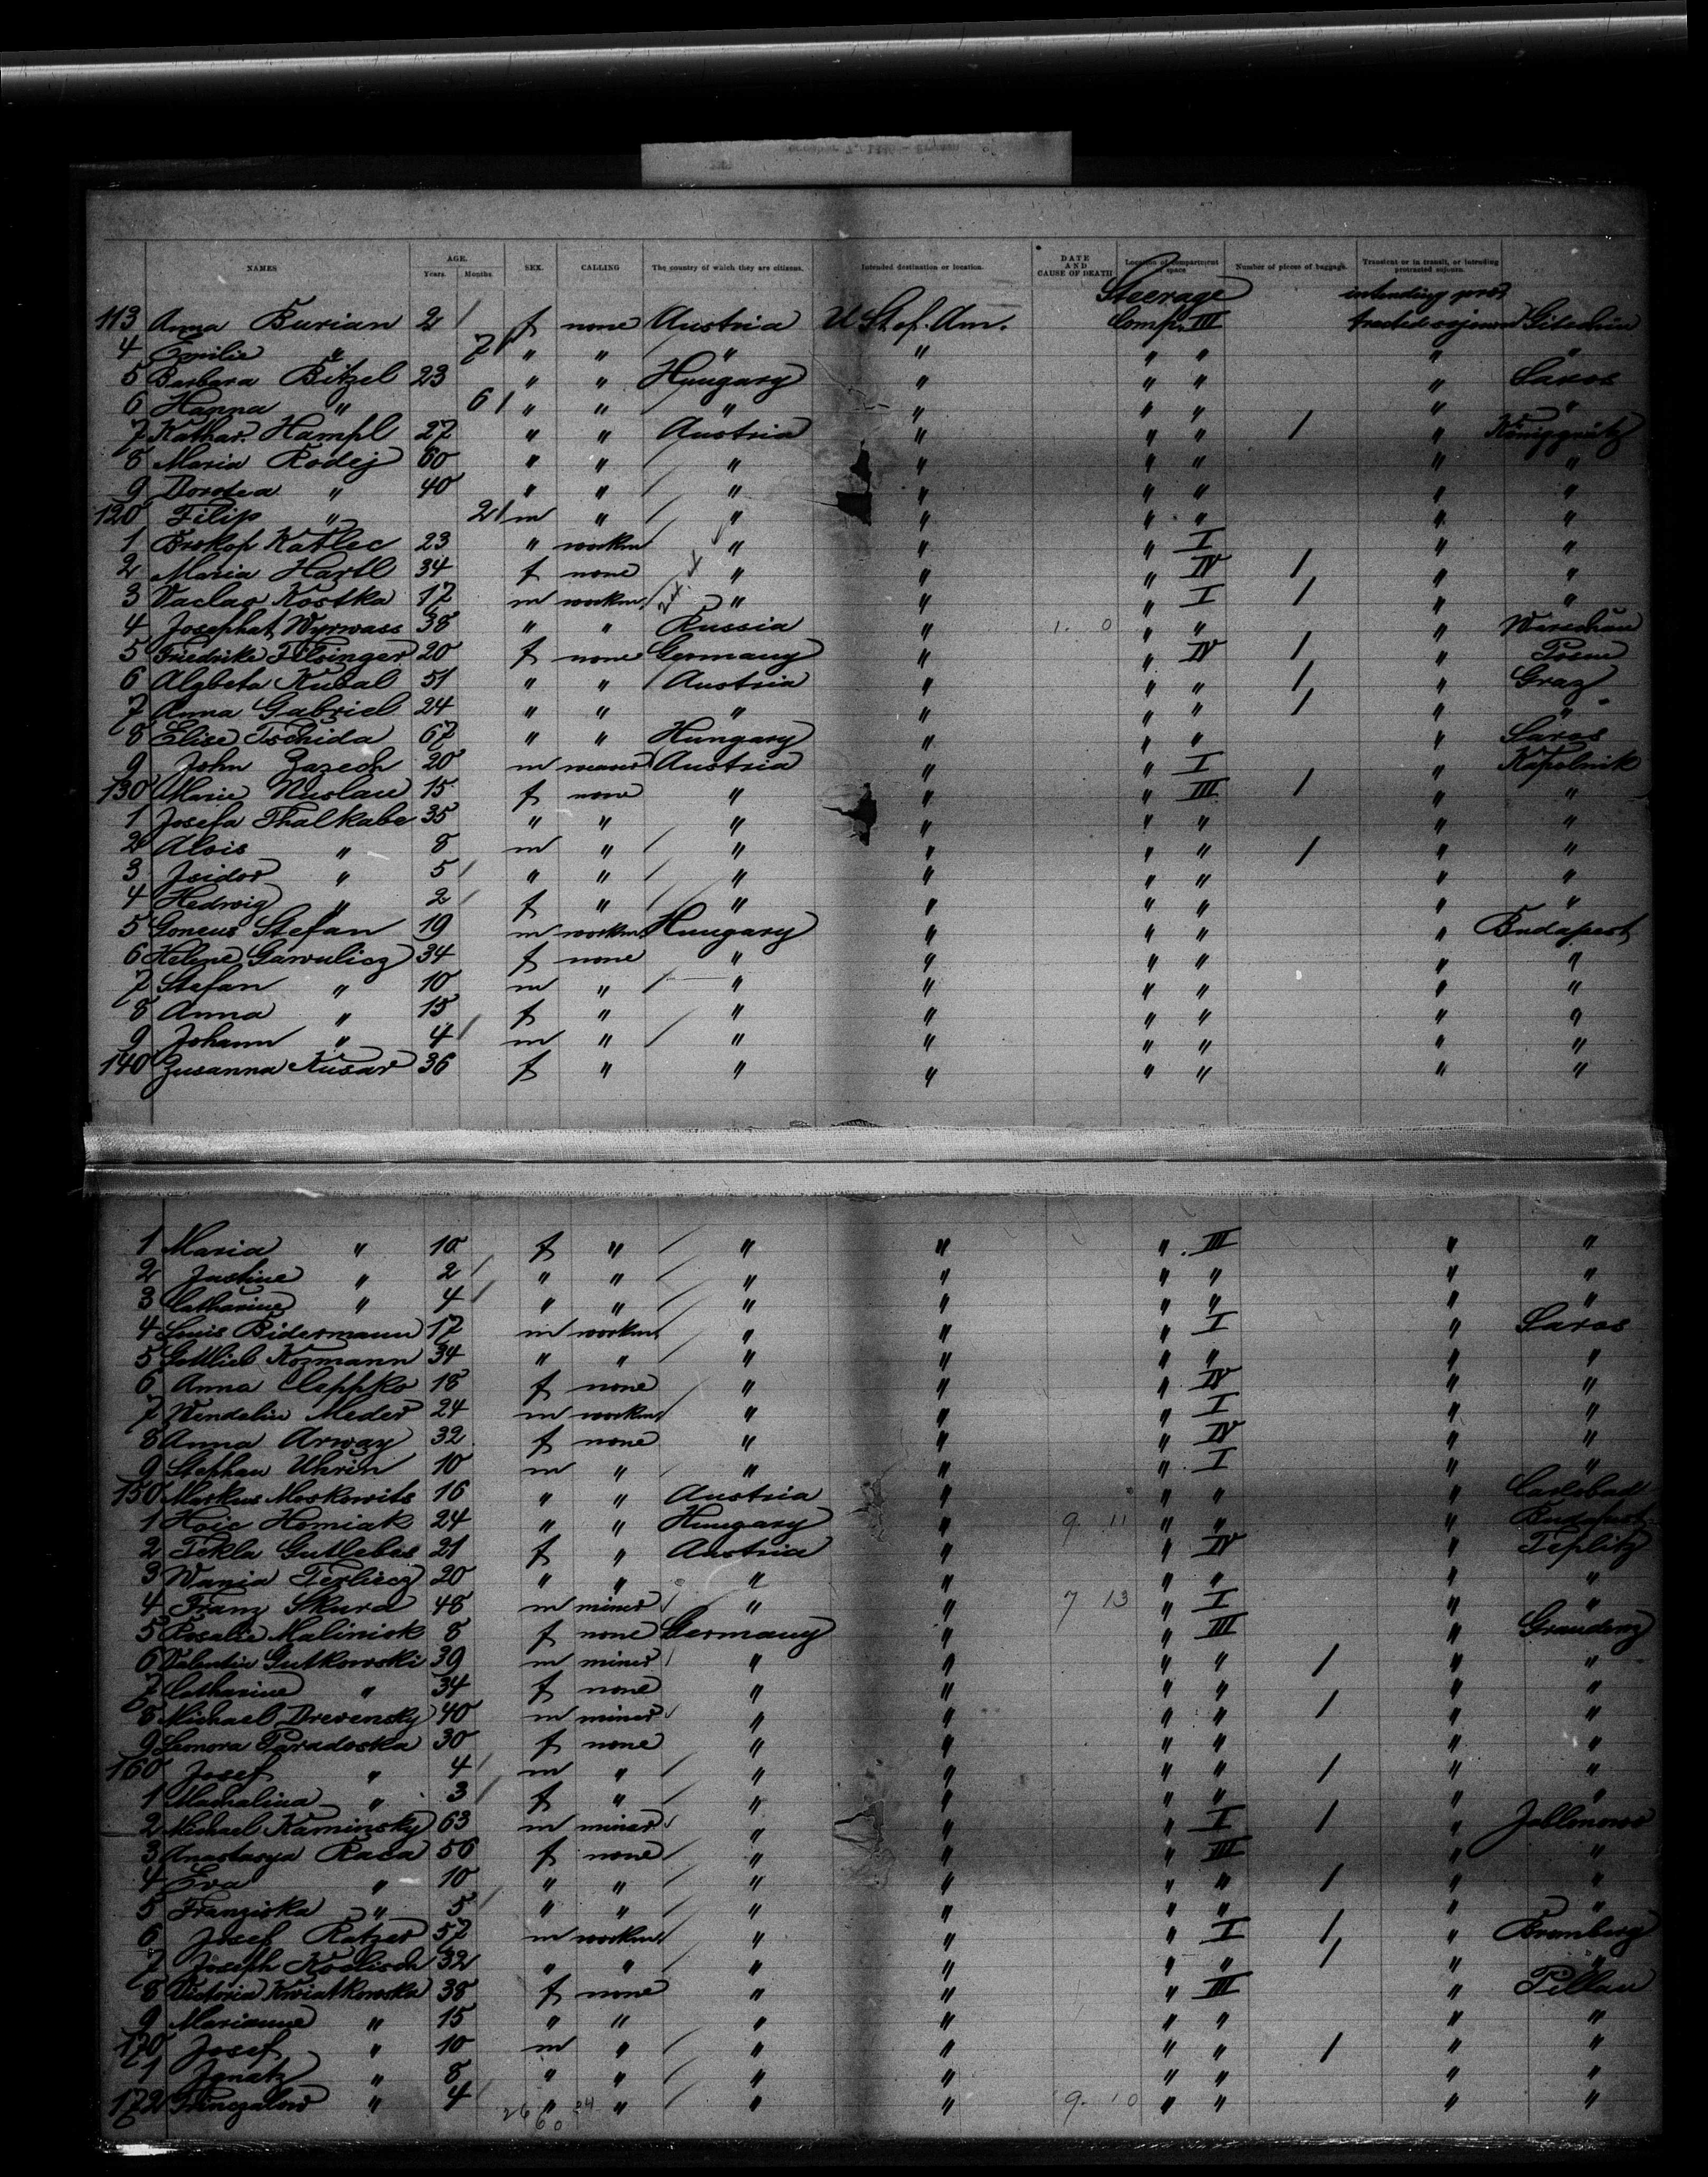 NAMES AGE. Years. Months. SEX. CALLING The country of which they are citizens. Intended destination or location. DATE AND CAUSE OF DEATH Location of compartment or space Number of pieces of baggage. Transient or in transit, or intending protracted sojourn.
Steerage intending pro-
113 Anna Burian 2 / f none Austria U St. of Am. Comp. III tracted sojourn Gitschin
4 Emilie " 7 " " " " " " " "
5 Barbara Bitzel 23 " " Hungary " " " " Saros
6 Hanna " 6 / " " " " " " " "
7 Kathar. Hampl 27 " " Austria " " " / " Königgrätz
8 Maria Rodej 60 " " " " " " " "
9 Dorotea " 40 " " / " " " " " "
120 Filip " 2 / m " / " " " " " "
1 Prokop Katlec 23 " workm " " " I " "
2 Maria Hartl 34 f none " " " IV / " "
3 Vaclav Kostka 17 m workm " " " I / " "
4 Josephat Wyrwass 38 " " Russia " 1. 0 " " " Warschau
5 Friedrike Filsinger 20 f none Germany " " IV / " Posen
6 Algbeta Kusal 51 " " / Austria " " " / " Graz
7 Anna Gabriel 24 " " " " " " / " "
8 Elise Tschida 67 " " Hungary " " " " Saros
9 John Zazech 20 m weaver Austria " " I " Kapolnik
130 Marie Nuslau 15 f none " " " III / " "
1 Josefa Thalkabe 35 " " " " " " " "
2 Alois " 8 m " / " " " " / " "
3 Isidor " 5 / " " / " " " " " "
4 Hedwig " 2 / f " / " " " " " "
5 Goneus Stefan 19 m workm Hungary " " " " Budapest
6 Helene Gawulicz 34 f none " " " " " "
7 Stefan " 10 m " / " " " " " "
8 Anna " 15 f " " " " " " "
9 Johann " 4 / m " / " " " " " "
140 Zusanna Kusar 36 f " " " " " " "
1 Maria " 10 f " / " " " III " "
2 Justine " 2 / " " / " " " " " "
3 Catharine " 4 / " " / " " " " " "
4 Louis Bidermann 17 m workm " " " I " Saros
5 Gottlieb Kozmann 34 " " " " " " " "
6 Anna Cleppko 18 f none " " " IV " "
7 Wendelin Meder 24 m workm " " " I " "
8 Anna Arway 32 f none " " " IV " "
9 Stephan Uhrin 10 m " / " " " I " "
150 Markus Moskowits 16 " " Austria " " " " Carlsbad
1 Hoic Homiak 24 " " Hungary " 9 11 " " " Budapest
2 Tekla Gutlebes 21 f " Austria " " IV " Teplitz
3 Wania Terliecz 20 " " " " " " " "
4 Franz Skura 48 m miner " " 7 13 " I " "
5 Rosalie Maliniok 8 f none Germany " " III " Graudenz
6 Valentin Gutkowski 39 m miner " " " " / " "
7 Catharine " 34 f none " " " " " "
8 Michael Drevensky 40 m miner " " " " / " "
9 Leonora Paradoska 30 f none " " " " " "
160 Josef " 4 / m " / " " " " / " "
1 " 3 / f " / " " " " " "
2 Michael Kaminsky 63 m miner " " " I / " Jablonowo
3 Anastasya Rasa 56 f none / " " " III " "
4 Eva " 10 " " / " " " " / " "
5 Franziska " 5 / " " / " " " " " "
6 Josef Ratzer 57 m workm " " " I / " Bromberg
7 Joseph Koslisch 32 " " " " " " / " "
8 Victoria Kwiatkowska 38 f none " " " III " Pillau
9 Marianne " 15 " " " " " " " "
170 Josef " 10 m " / " " " " / " "
1 Ignatz " 8 " " / " " " " " "
172 " 4 / " " / " " 9. 10 " " " "
26 60 24